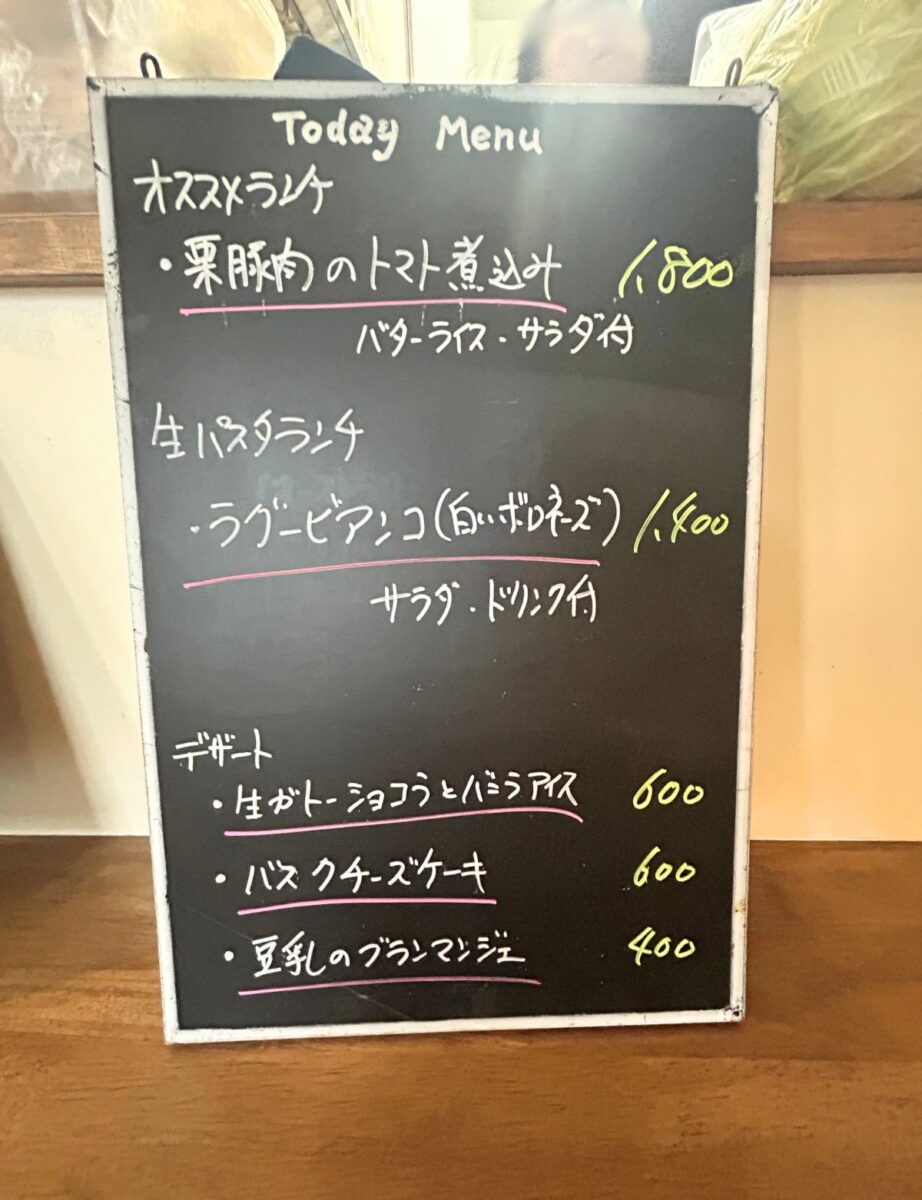 Today Menu
オススメランチ
・栗豚肉のトマト煮込み 1.800
バターライス・サラダ付
生パスタランチ
・ラグービアンコ(白いボロネーズ) 1.400
サラダ・ドリンク付
デザート
・生ガトーショコラとバニラアイス 600
・バスクチーズケーキ 600
・豆乳のブランマンジェ 400